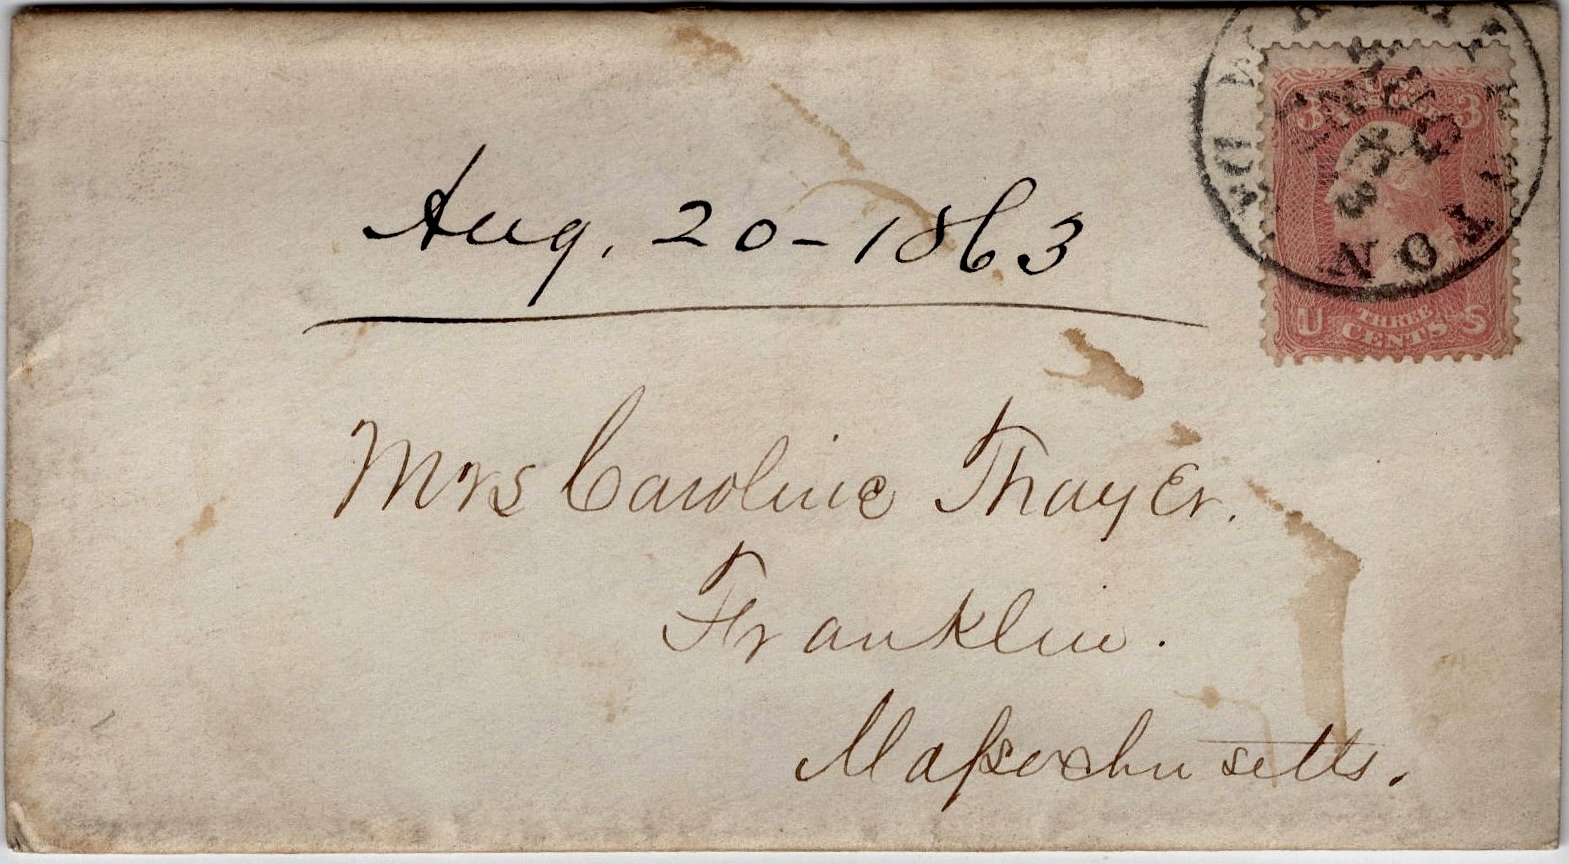 Aug. 20-1863
3 3
U THREE S
CENTS
Mrs Caroline Thayer.
Franklin.
Massachusetts.